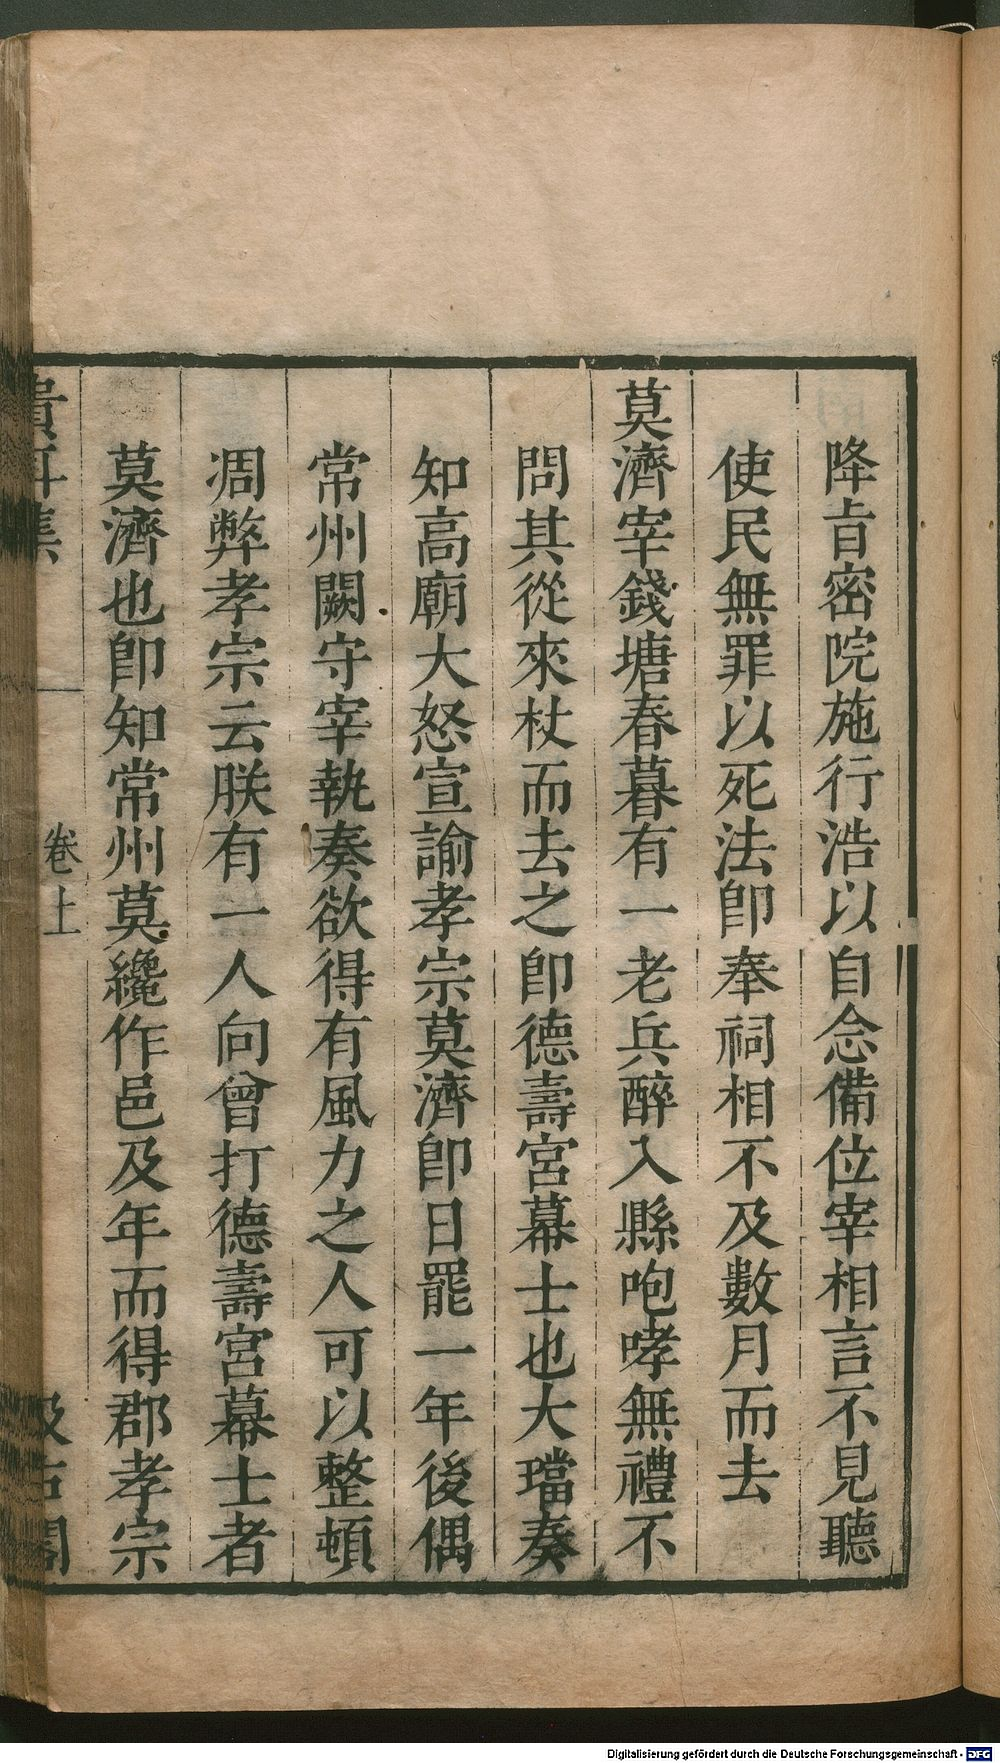 降旨密院施行浩以自念備位宰相言不見聽
使民無罪以死法卽奉祠相不及數月而去
莫濟宰錢塘春暮有一老兵醉入縣咆哮無禮不
問其從來杖而去之卽德壽宮幕士也大璫奏
知高廟大怒宣諭孝宗莫濟卽日罷一年後偶
常州闕守宰執奏欲得有風力之人可以整頓
凋弊孝宗云朕有一人向曾打德壽宮幕士者
莫濟也卽知常州莫纔作邑及年而得郡孝宗
貴耳集
卷上
汲古閣
Digitalisierung gefördert durch die Deutsche Forschungsgemeinschaft - DFG